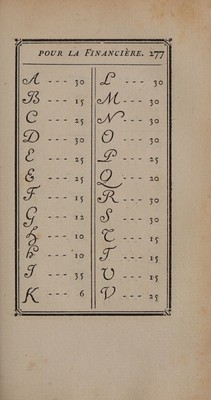 POUR LA FINANCIÈRE. 277
A --- 30
B --- 15
C --- 25
D --- 30
E --- 25
E --- 25
F --- 15
G --- 12
H --- 10
h --- 10
J --- 35
K --- 6
L --- 30
M --- 30
N --- 30
O --- 30
P --- 25
Q --- 20
R --- 30
S --- 30
T --- 15
T --- 15
U --- 15
V --- 25